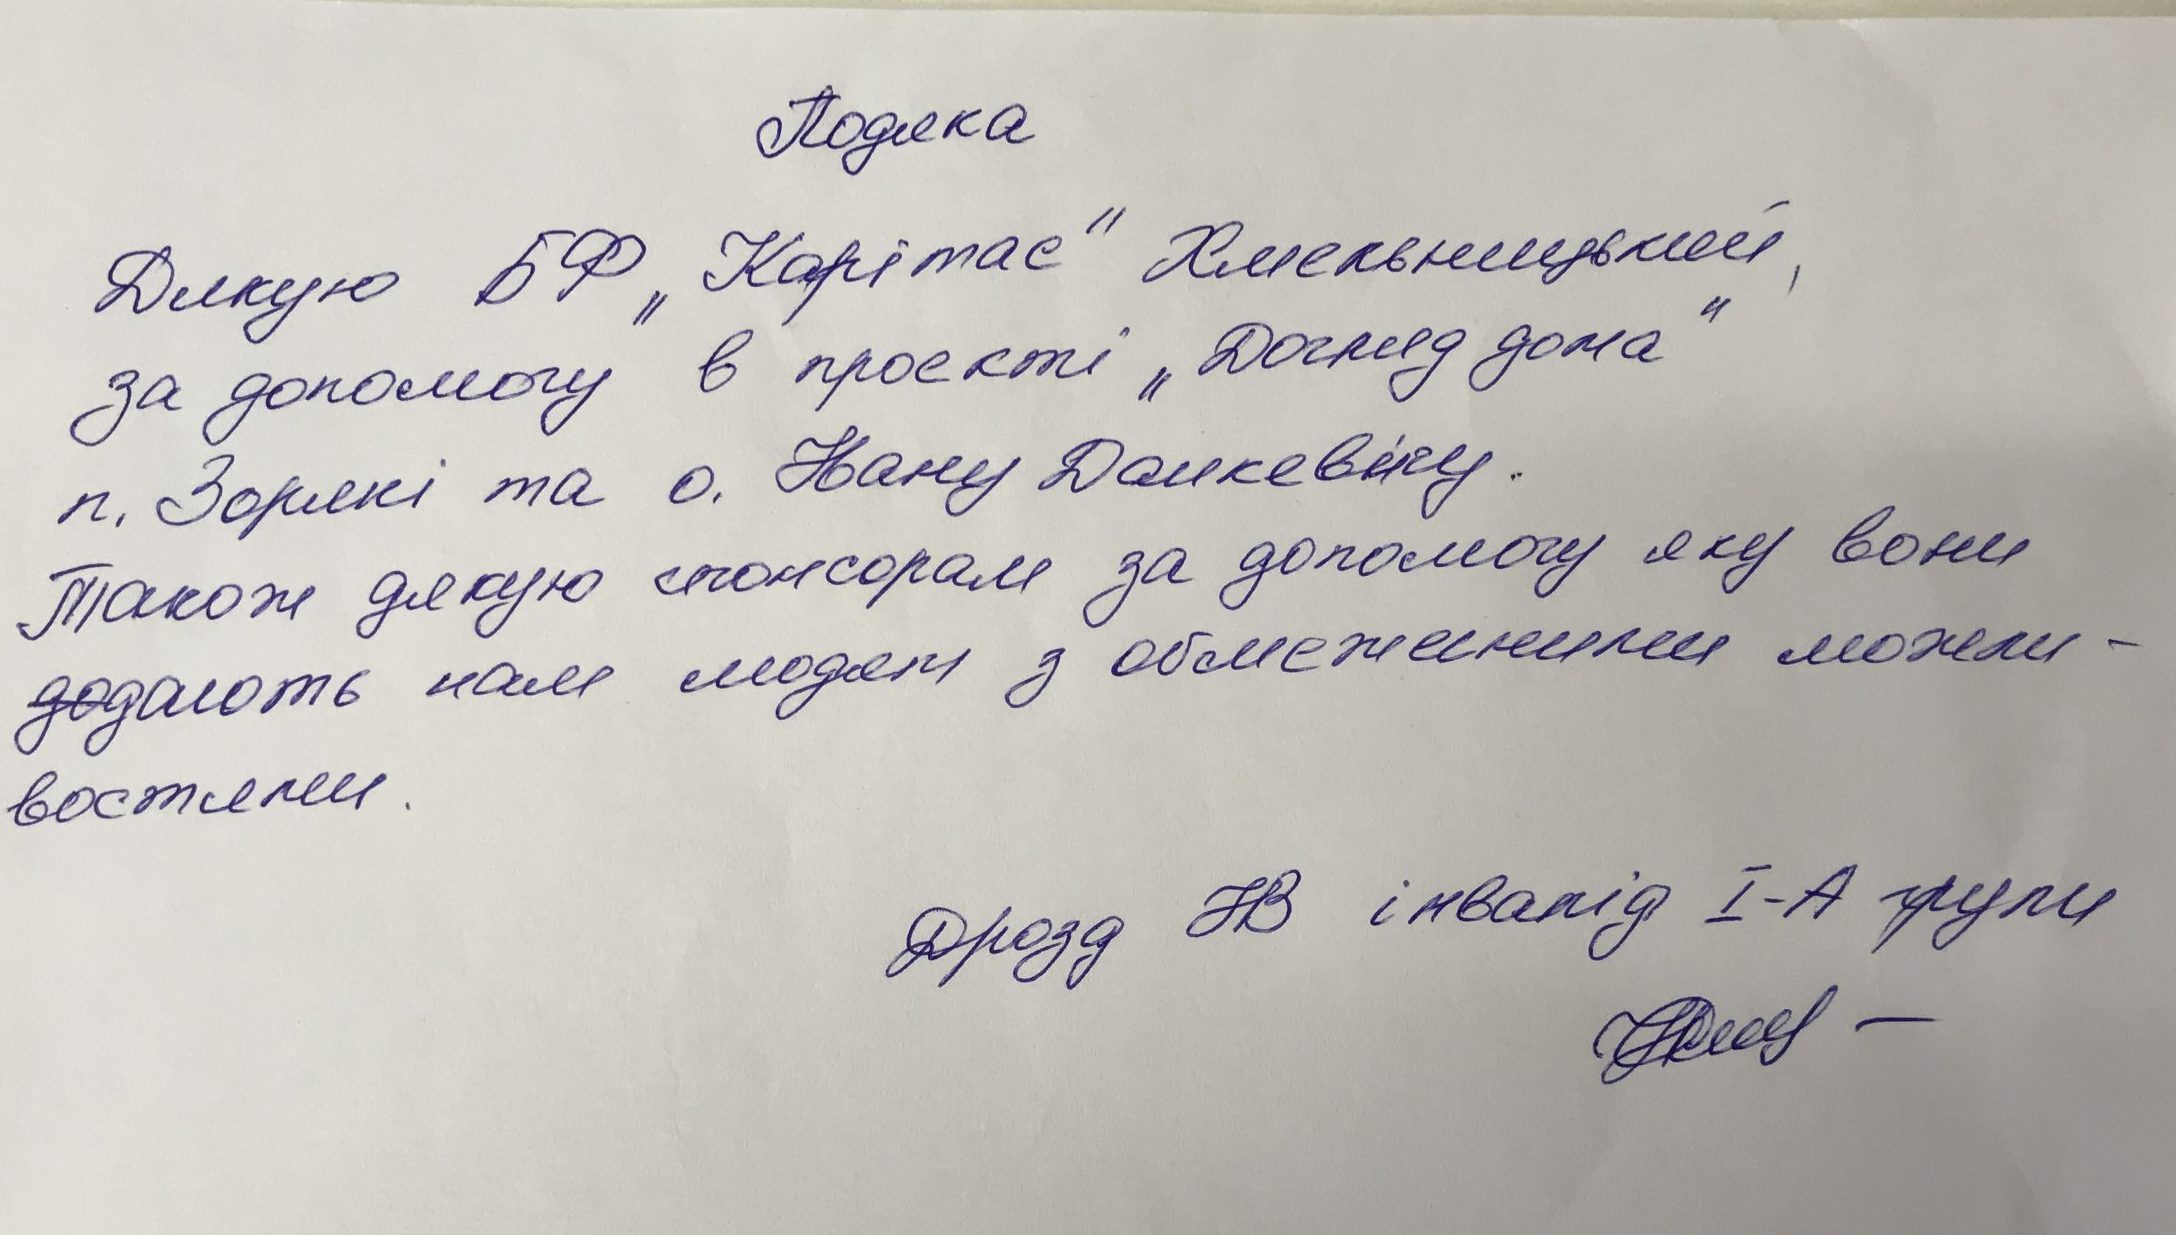 Подяка
Дякую БФ „Карітас" Хмельницький,
за допомогу в проєкті „Догляд дома"
п. Зорякі та о. Івану Данкевічу.
Також дякую спонсорам за допомогу яку вони
додають нам людям з обмеженими можли-
востями.
Дрозд НВ інвалід I-А групи